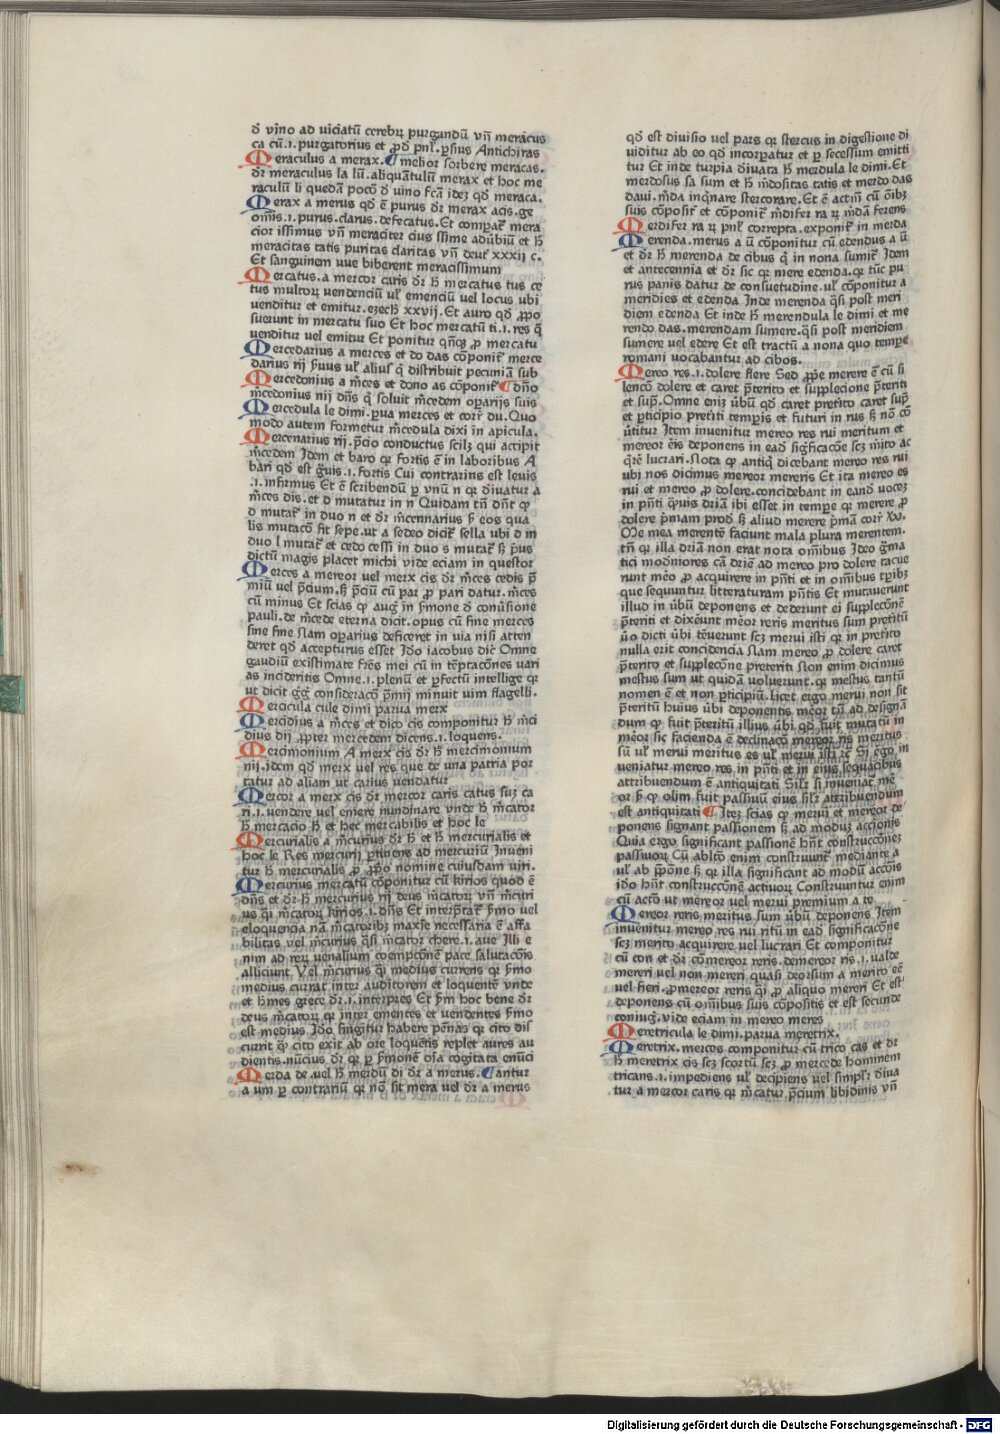 ð vino ad viciatū cerebrꝝ purgandū vn̄ meracus
ca cū .i. purgatorius et ꝓð pnl̓. ꝑsius Antichiras
Meraculus a merax. melior sorbere meracas.
ðr meraculus la lū. aliquātulū merax et hoc me
raculū li quedā pocō ð vino fcā idez qð meraca.
Merax a merus qð ē purus ðr merax acis. ge
om̄is .i. purus. clarus. defecatus. Et compat̄ mera
cior issimus vn̄ meraciter cius ssime adūbiū et h̄
meracitas tatis puritas claritas vn̄ deut̓ xxxij c.
Et sanguinem vue biberent meracissimum
Mercatus. a mercor caris ðr h̄ mercatus tus ce
tus multoꝝ vendenciū ul̓ emenciū vel locus ubi
venditur et emitur. ezech̓ xxvij. Et auro qð ꝓpo
suerunt in mercatu suo Et hoc mercatū ti .i. res q̄
venditur vel emitur Et ponitur qn̄qꝫ ꝓ mercatu
Mercedarius a merces et do das cōponit̓ merce
darius rij ẜuus ul̓ alius q̓ distribuit pecuniā sub
Mercedonius a m̓ces et dono as cōponit̓ dn̄o
m̓cedonius nij dn̄s q̓ soluit m̓cedem oꝑarijs suis
Mercedula le dimi. ꝑua merces et corr̓ du. Quo
modo autem formetur m̓cedula dixi in apicula.
Mercenarius rij. p̓cio conductus scilꝫ qui accipit
m̓cedem Idem et baro qꝛ fortis ē in laboribus A
bari qð est g̓uis .i. fortis Cui contrarius est leuis
.i. infirmus Et ē scribendū ꝑ vnū n qꝛ ðiuatur a
m̓ces dis. et d mutatur in n Quidam tn̄ dn̄t qꝫ
d mutat̓ in duo n et ðr m̓cennarius ẜ eos qua
lis mutacō fit sepe. ut a sedeo dicit̓ sella ubi d in
duo l mutat̓ et cedo cessi in duo s mutat̓ ẜ p̓us
dictū magis placet michi vide eciam in questor
Merces a mereor vel merx cis ðr m̓ces cedis p̄
miū vel p̓cium. ẜ p̓ciū cū par ꝓ pari datur. m̓ces
cū minus Et scias qꝫ aug̓ in ẜmone ð conūsione
pauli. de m̓cede eterna dicit. opus cū fine merces
sine fine Nam oꝑarius deficeret in via nisi atten
deret qð accepturus esset Ido iacobus dic̓ Omne
gaudiū existimate fr̄es mei cū in tēptacōnes vari
as incideritis Omne .i. plenū et ꝑfectū intellige qꝛ
ut dicit g̓g̓ consideracō p̓mij minuit uim flagelli.
Mercicula cule dimi parua merx
Mercidius a m̓ces et dico cis componitur h̄ m̓ci
dius dij .ꝓpter mercedem dicens .i. loquens.
Mercimonium A merx cis ðr h̄ mercimonium
nij. idem qð merx vel res que de una patria por
tatur ad aliam ut carius vendatur
Mercor a merx cis ðr mercor caris catus suꝫ ca
ri .i. vendere vel emere nundinare vnde h̄ m̓cator
h̄ mercacio h̄ et hec mercabilis et hoc le
Mercurialis a m̓curius ðr h̄ et h̄ mercurialis et
hoc le Res mercurij ꝑtinens ad mercuriū Inueni
tur h̄ mercurialis ꝓ ꝓpo nomine cuiusdam uiri.
Mercurius mercatū cōponitur cū kirios quod ē
dn̄s et ðr h̄ mercurius rij deus m̓catoꝝ vn̄ m̓curi
us q̓i m̓catoꝝ kirios .i. dn̄s Et interp̓tat̓ ẜmo uel
eloquencia nā m̓catoribꝫ maxīe necessaria ē affa
bilitas vel m̓curius q̓si m̓cator chere .i. aue Illi e
nim ad reꝝ venalium coempcōnē pace salutacōīs
alliciunt Vel m̓curius q̓i medius currens qꝛ ẜmo
medius currat inter auditorem et loquentē vnde
et h̓mes grece ðr .i. interpres Et ẜm hoc bene ðr
deus m̓catoꝝ qꝛ inter ementes et vendentes ẜmo
est medius Ido fingitur habere pēnas qꝛ cito dis
currit qꝫ cito exit ab ore loquētis replet aures au
dientis. nūcius ðr qꝛ ꝑ ẜmonē oīa cogitata enūci
Merda de. vel h̄ merdū di ðr a merus. antur
a um ꝑ contrariū qꝛ nō sit mera vel ðr a merus
qð est diuisio uel pars qꝛ stercus in digestione di
uiditur ab eo qð incorꝑatur et ꝑ secessum emitti
tur Et inde turpia ðiuata h̄ merdula le dimi. Et
merdosus sa sum et h̄ m̓dositas tatis et merdo das
daui. m̓da inq̓nare stercorare. Et ē actiū cū oībꝫ
suis cōposit̓ et cōponit̓ m̓difer ra ꝝ m̓dā ferens
Merdifer ra ꝝ pnl̓ correpta. exponit̓ in merda
Merenda. merus a ū cōponitur cū edendus a ū
et ðr h̄ merenda de cibus q̓ in nona sumit̓ Idem
et antecennia et ðr sic qꝛ mere edenda. qꝛ tūc pu
rus panis datur de consuetudine. ul̓ cōponitur a
meridies et edenda Inde merenda q̓si post meri
diem edenda Et inde h̄ merendula le dimi et me
rendo das. merendam sumere. q̓si post meridiem
sumere vel edere Et est tractū a nona quo tempe
romani vocabantur ad cibos.
Mereo res .i. dolere flere Sed ꝓpe merere ē cū si
lencō dolere et caret p̄terito et supplecione p̄teriti
et sup̄. Omne eniꝫ ūbū qð caret pret̓ito caret sup̄
et ꝑticipio pret̓iti temꝑis et futuri in rus ẜ nō cō
ūtitur Item inuenitur mereo res rui meritum et
mereor ēis deponens in eað sig̓ficacōe scꝫ m̓ito ac
q̓re lucrari. Nota qꝫ antiq̓ dicebant mereo res rui
ubi nos dicimus mereor mereris Et ita mereo es
rui et mereo ꝓ dolere. concidebant in eanð uoceꝫ
in pn̄ti q̓uis driā ibi esset in tempe qꝛ merere ꝓ
dolere p̓mam prod̓ ẜ aliud merere p̓mā corr̓ Vn̄.
Me mea merentē faciunt mala plura merentem.
tn̄ qꝛ illa driā non erat nota om̄ibus Ideo g̓ma
tici mod̓niores cā drie ad mereo pro dolere tacue
runt mēo ꝓ acquirere in pn̄ti et in om̄ibus tp̄ibꝫ
que sequuntur litteraturam pn̄tis Et mutauerunt
illud in ūbū deponens et dederunt ei supplecōnē
p̄teriti et dixēunt mēor reris meritus sum pret̓itū
ūo dicti ūbi tēuerunt scꝫ merui isti qꝛ in pret̓ito
nulla erit concidencia Nam mereo ꝓ dolere caret
p̄terito et supplecōne preteriti Non enim dicimus
mestus sum ut quidā voluerunt. qꝛ mestus tantū
nomen ē et non ꝑticipiū. licet ergo merui non sit
p̄teritū huius ūbi deponentis mēor tn̄ ad designā
dum qꝫ fuit p̄teritū illius ūbi qð fuit mutatū in
mēor sic facienda ē declinacō mereor ris meritus
sū ul̓ merui meritus es ul̓ merui isti ꝛc̄ Si ergo in
ueniatur mereo res in pn̄ti et in eius sequacibus
attribuendum ē antiquitati Silr̓ si inueniat̓ mē
or ẜ qꝫ olim fuit passiuū eius silr̓ attribuendum
est antiquitati Iteꝫ scias qꝫ merui et mereor de
ponens signant passionem ẜ ad moduꝫ accionis
Quia ergo significant passionē hn̄t construccōneꝫ
passiuoꝝ Cū ablt̓o enim construunt̓ mediante a
ul̓ ab p̓pōne ẜ qꝛ illa significant ad modū accōis
ido hn̄t construccōnē actiuoꝝ Construuntur enim
cū actō ut mereor uel merui premium a te
Mereor reris meritus sum ūbū deponens Item
inuenitur mereo res rui ritū in eað significacōne
scꝫ merito acquirere vel lucrari Et componitur
cū con et ðr cōmereor reris. demereor ris .i. valde
mereri vel non mereri quasi deorsum a merito eē
vel fieri. ꝓmereor reris q̓i ꝓ aliquo mereri Et est
deponens cū om̄ibus suis cōpositis et est secunde
coniug̓. vide eciam in mereo meres
Meretricula le dimi. parua meretrix.
Meretrix. merces componitur cū trico cas et ðr
h̄ meretrix cis scꝫ scortū scꝫ ꝓ mercede hominem
tricans .i. impediens ul̓ decipiens uel simpl̓r ðiua
tur a mercor caris qꝛ m̓catur p̓cium libidinis vn̄
Digitalisierung gefördert durch die Deutsche Forschungsgemeinschaft - DFG